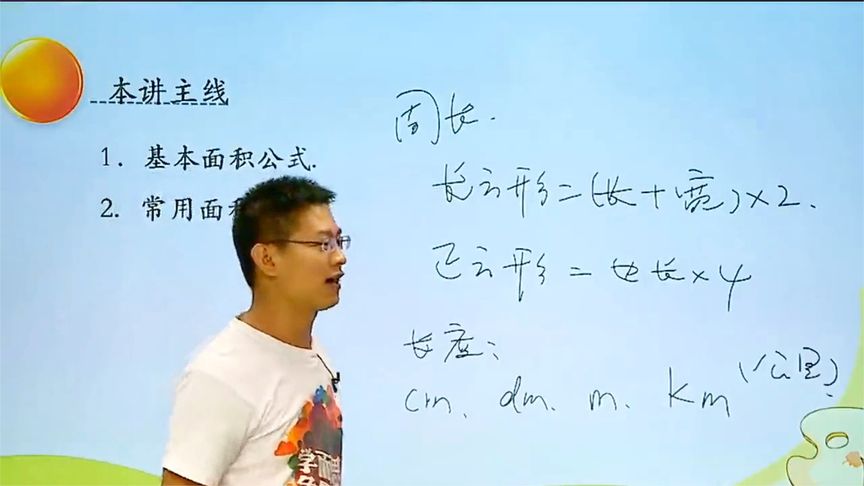 本讲主线
1. 基本面积公式.
2. 常用面积
周长.
长方形=(长+宽)×2.
正方形=边长×4
长度:
cm. dm. m. km (公里).
学而思